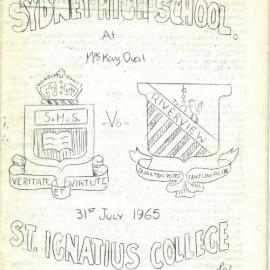 SYDNEY HIGH SCHOOL.
At
McKay Oval
S.H.S.
-Vs-
RIVERVIEW
VERITATE ET VIRTUTE
QUANTUM POTES TANTUM AUDE
31ST JULY 1965
ST. IGNATIUS COLLEGE